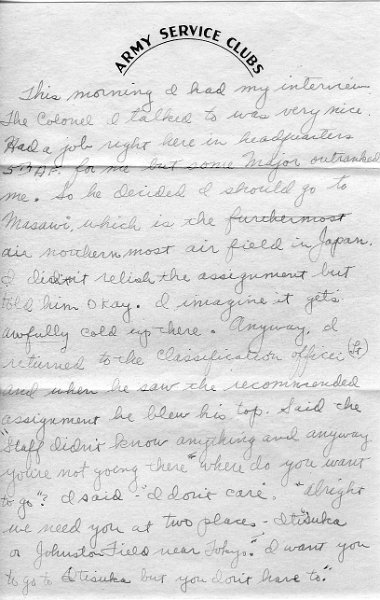 ARMY SERVICE CLUBS
This morning I had my interview.
The Colonel I talked to was very nice.
Had a job right here in headquarters
5th A.F. for me but some Major outranked
me. So he decided I should go to
Masawi, which is the furthermost
air northernmost air field in Japan.
I didn't relish the assignment but
told him Okay. I imagine it gets
awfully cold up there. Anyway, I
returned to the classification officer (Lt)
and when he saw the recommended
assignment he blew his top. Said the
"Staff didn't know anything and anyway
you're not going there" "where do you want
to go"? I said - "I don't care". "Alright
we need you at two places - Itisuka
or Johnston Field near Tokyo." I want you
to go to Itisuka but you don't have to."